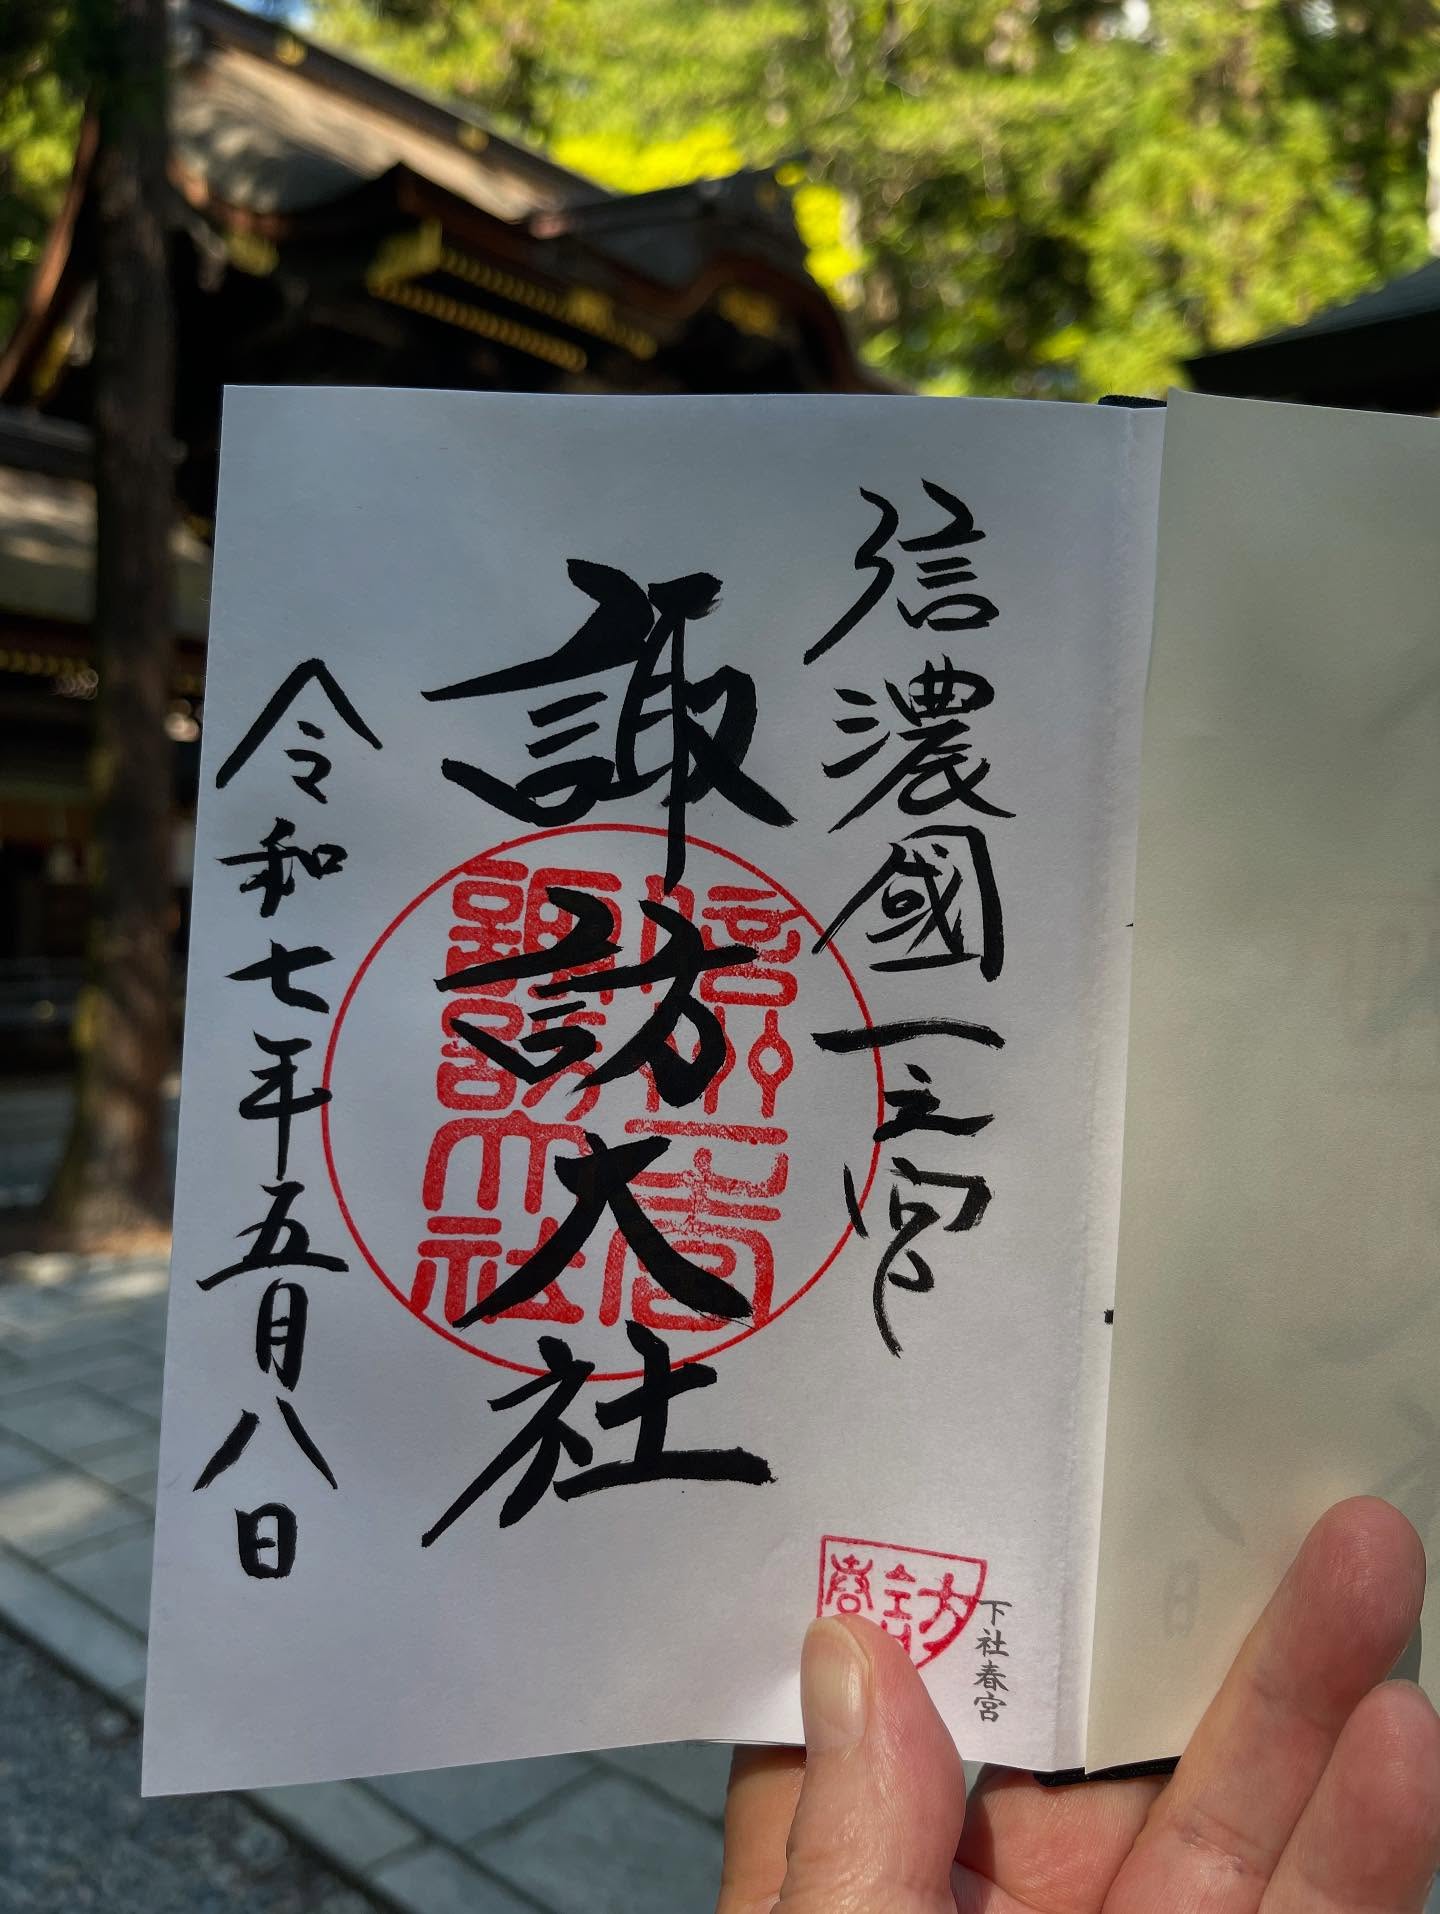 信濃國一之宮
諏訪大社
令和七年五月八日
信州一之宮
諏訪大社
下社春宮